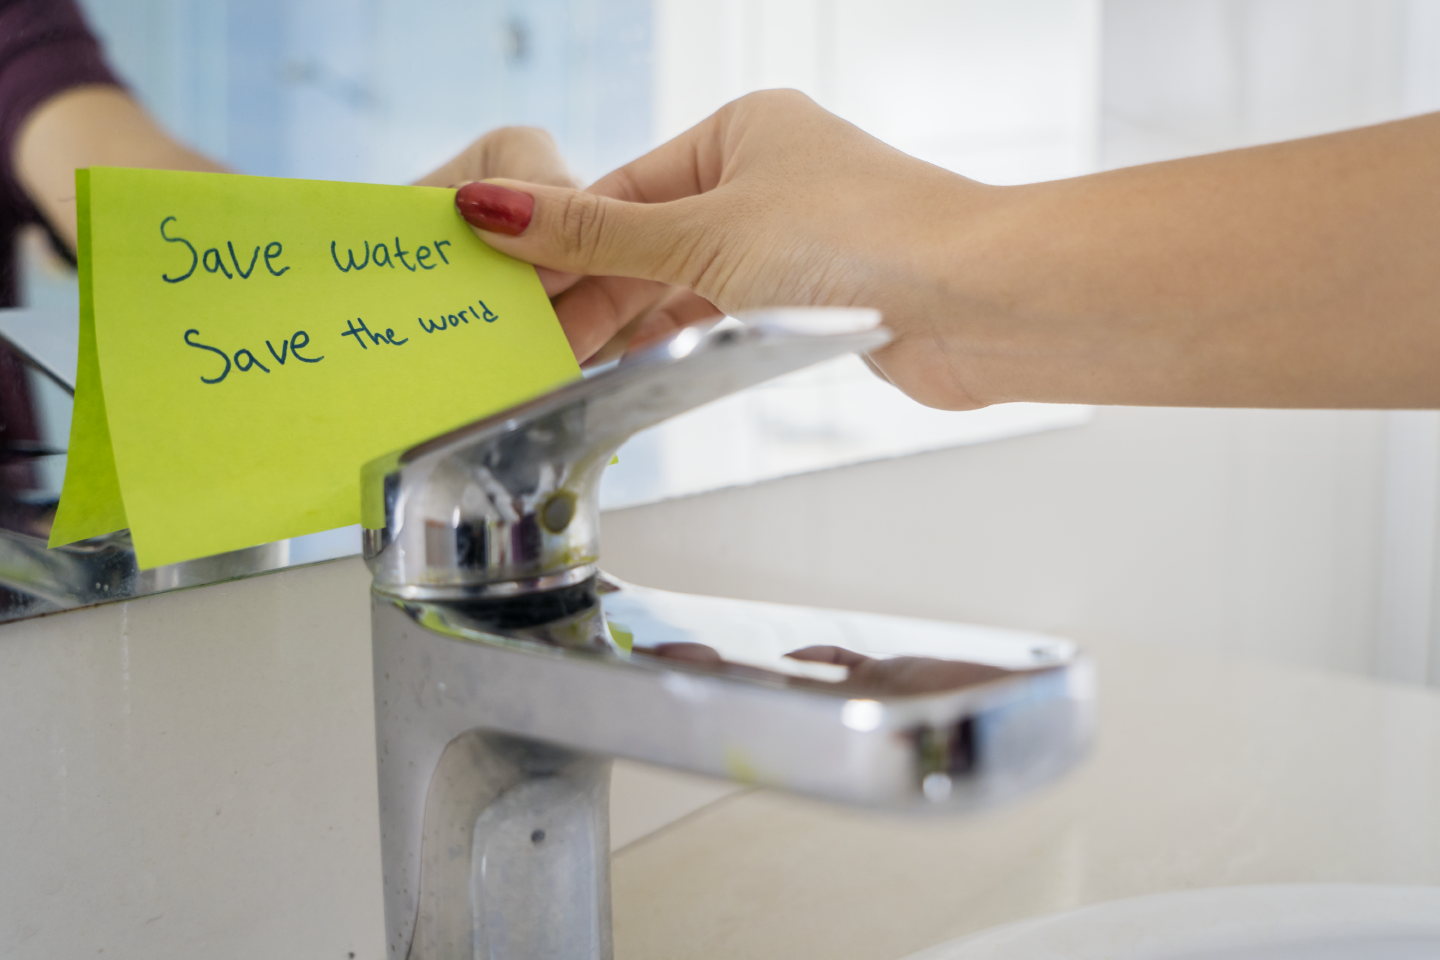 Save water
Save the world